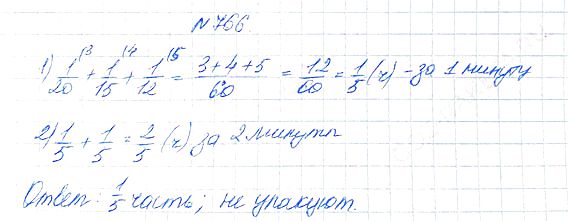 №766
1) 1/20 ⁽³ + 1/15 ⁽⁴ + 1/12 ⁽⁵ = (3+4+5)/60 = 12/60 = 1/5 (ч) - за 1 минуту
2) 1/5 + 1/5 = 2/5 (ч) за 2 минуты
Ответ: 1/5 часть; не упакуют.